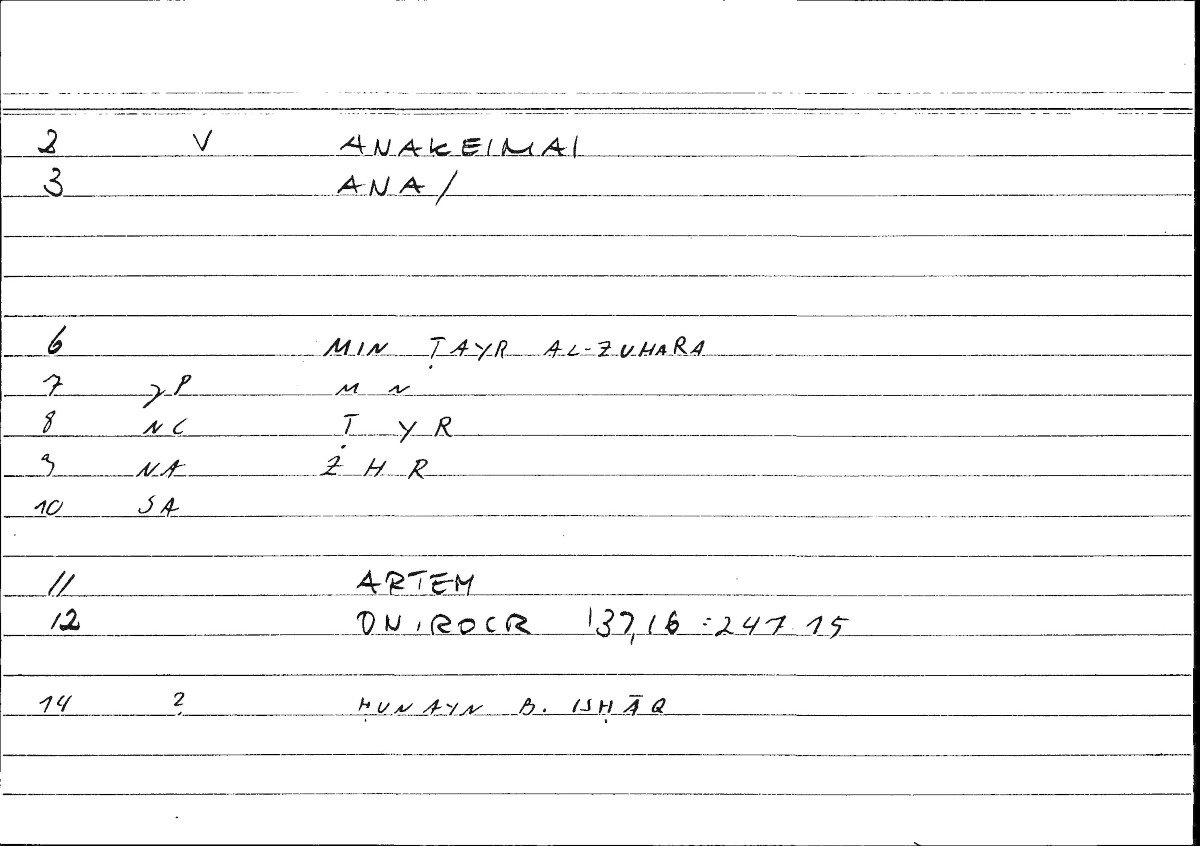 2 V ANAKEIMAI
3 ANA/
6 MIN ṬAYR AL-ZUHARA
7 γP M N
8 NC Ṭ Y R
9 NA Z H R
10 SA
11 ARTEM
12 ONIROCR 137,16 =247.15
14 ? ḤUNAYN B. ISḤĀQ